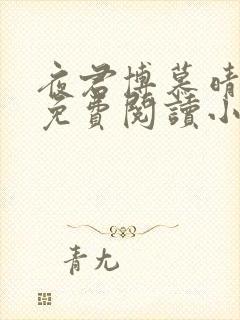 夜君博慕晴
免費閱讀小
青尢